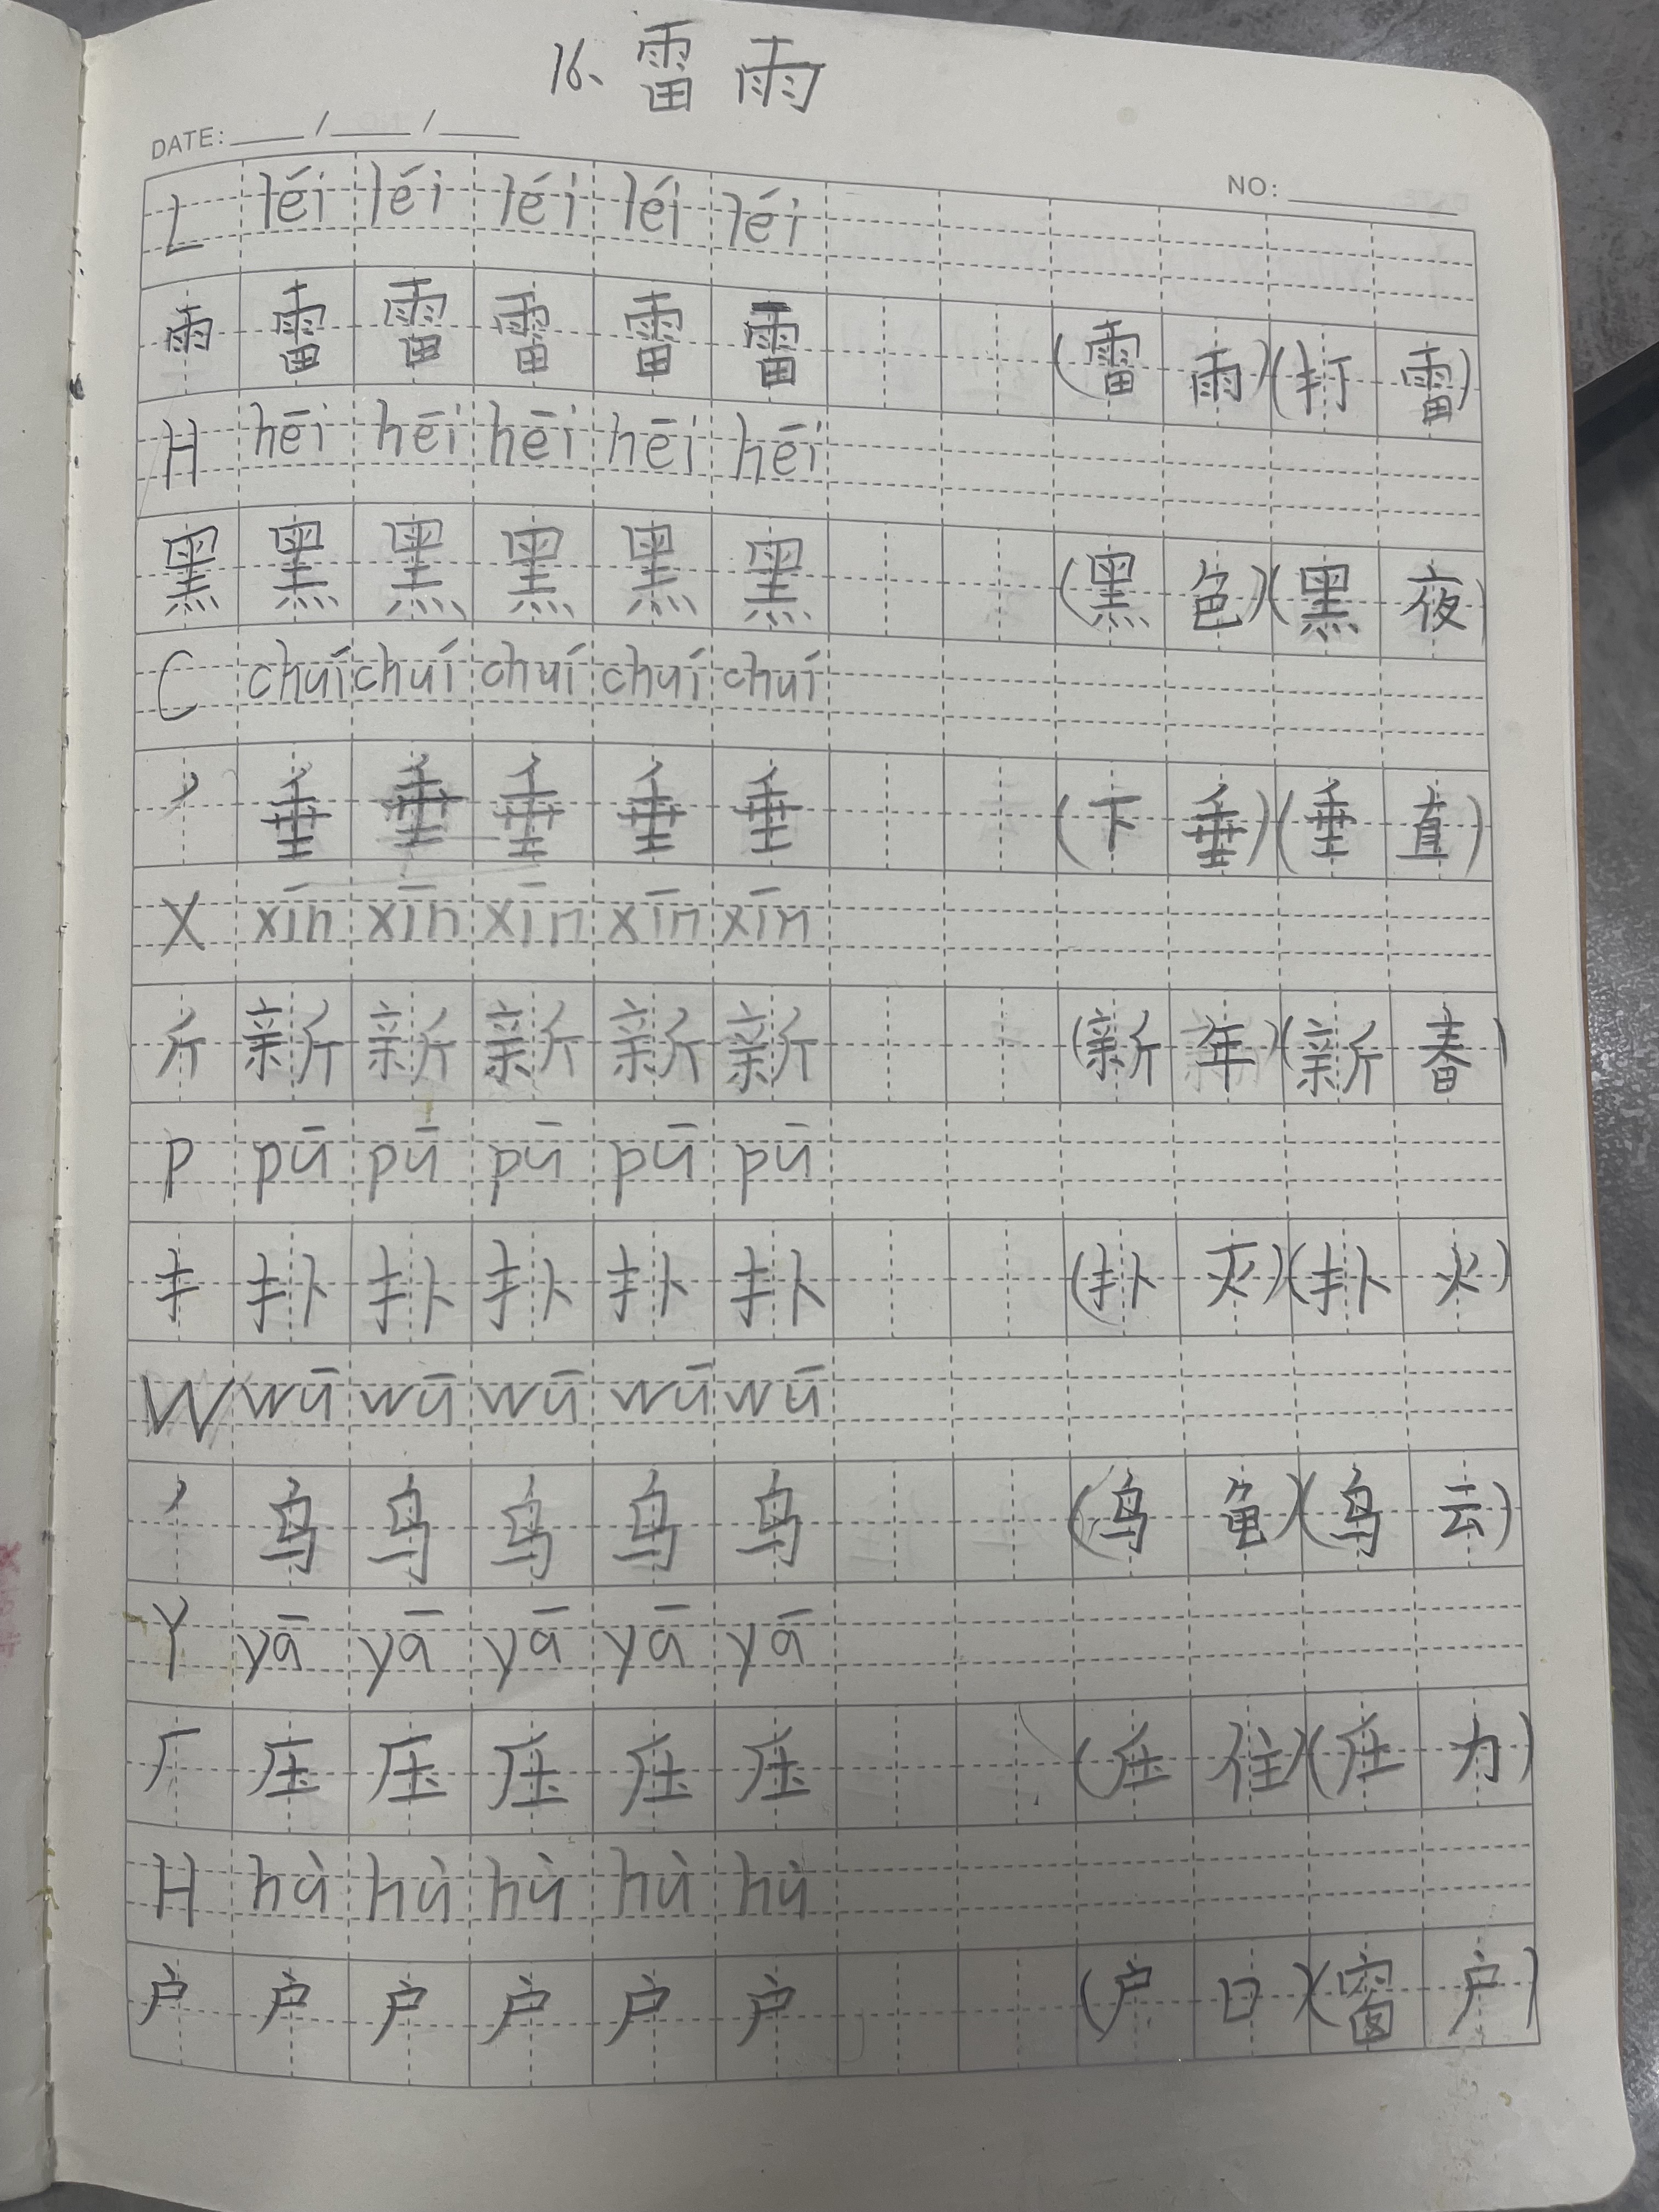 16、雷雨
DATE: / /
NO:
L léi léi léi léi léi
雨 雷 雷 雷 雷 雷 (雷雨)(打雷)
H hēi hēi hēi hēi hēi
黑 黑 黑 黑 黑 黑 (黑色)(黑夜)
C chuí chuí chuí chuí chuí
丿 垂 垂 垂 垂 垂 (下垂)(垂直)
X xīn xīn xīn xīn xīn
斤 新 新 新 新 新 (新年)(新春)
P pū pū pū pū pū
扌 扑 扑 扑 扑 扑 (扑灭)(扑火)
W wū wū wū wū wū
丿 乌 乌 乌 乌 乌 (乌龟)(乌云)
Y yā yā yā yā yā
厂 压 压 压 压 压 (压住)(压力)
H hù hù hù hù hù
户 户 户 户 户 户 (户口)(窗户)